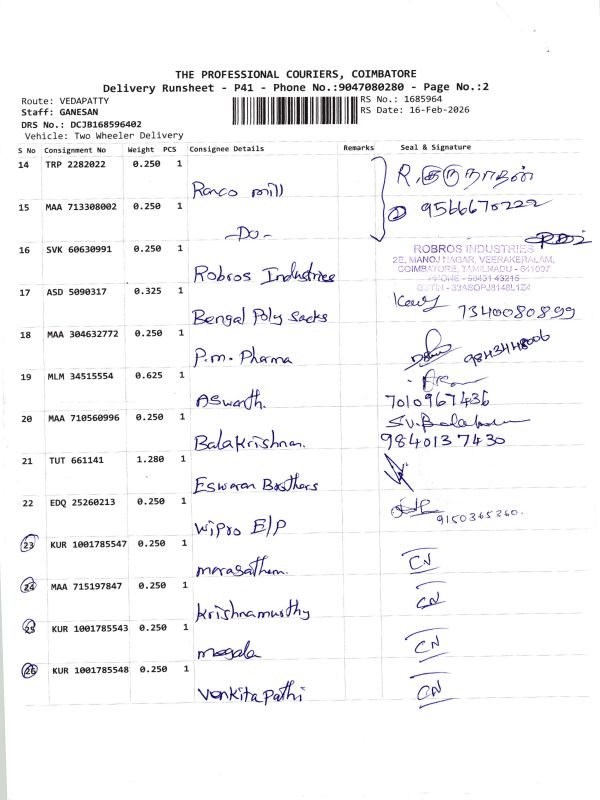 THE PROFESSIONAL COURIERS, COIMBATORE
Delivery Runsheet - P41 - Phone No.:9047080280 - Page No.:2
Route: VEDAPATTY
RS No.: 1685964
Staff: GANESAN
RS Date: 16-Feb-2026
DRS No.: DCJB168596402
Vehicle: Two Wheeler Delivery
S No Consignment No Weight PCS Consignee Details Remarks Seal & Signature
14 TRP 2282022 0.250 1
Ranco mill
R.குருநாதன்
15 MAA 713308002 0.250 1
9566670222
-Do-
16 SVK 60630991 0.250 1
Robros Industries
ROBROS INDUSTRIES
2E, MANOJ NAGAR, VEERAKERALAM,
COIMBATORE, TAMILNADU - 641007
PHONE - 98431 43215
GSTIN - 33ASOPJ8148L1Z4
17 ASD 5090317 0.325 1
Bengal Poly Sacks
7340080899
18 MAA 304632772 0.250 1
P.M. Pharma
19 MLM 34515554 0.625 1
Aswath.
7010967436
20 MAA 710560996 0.250 1
Balakrishnan.
9840137430
21 TUT 661141 1.280 1
Eswaran Brothers
22 EDQ 25260213 0.250 1
Wipro E/P
9150365260.
23 KUR 1001785547 0.250 1
CN
24 MAA 715197847 0.250 1
Krishnamurthy
CN
25 KUR 1001785543 0.250 1
megala
CN
26 KUR 1001785548 0.250 1
Venkitapathi
CN